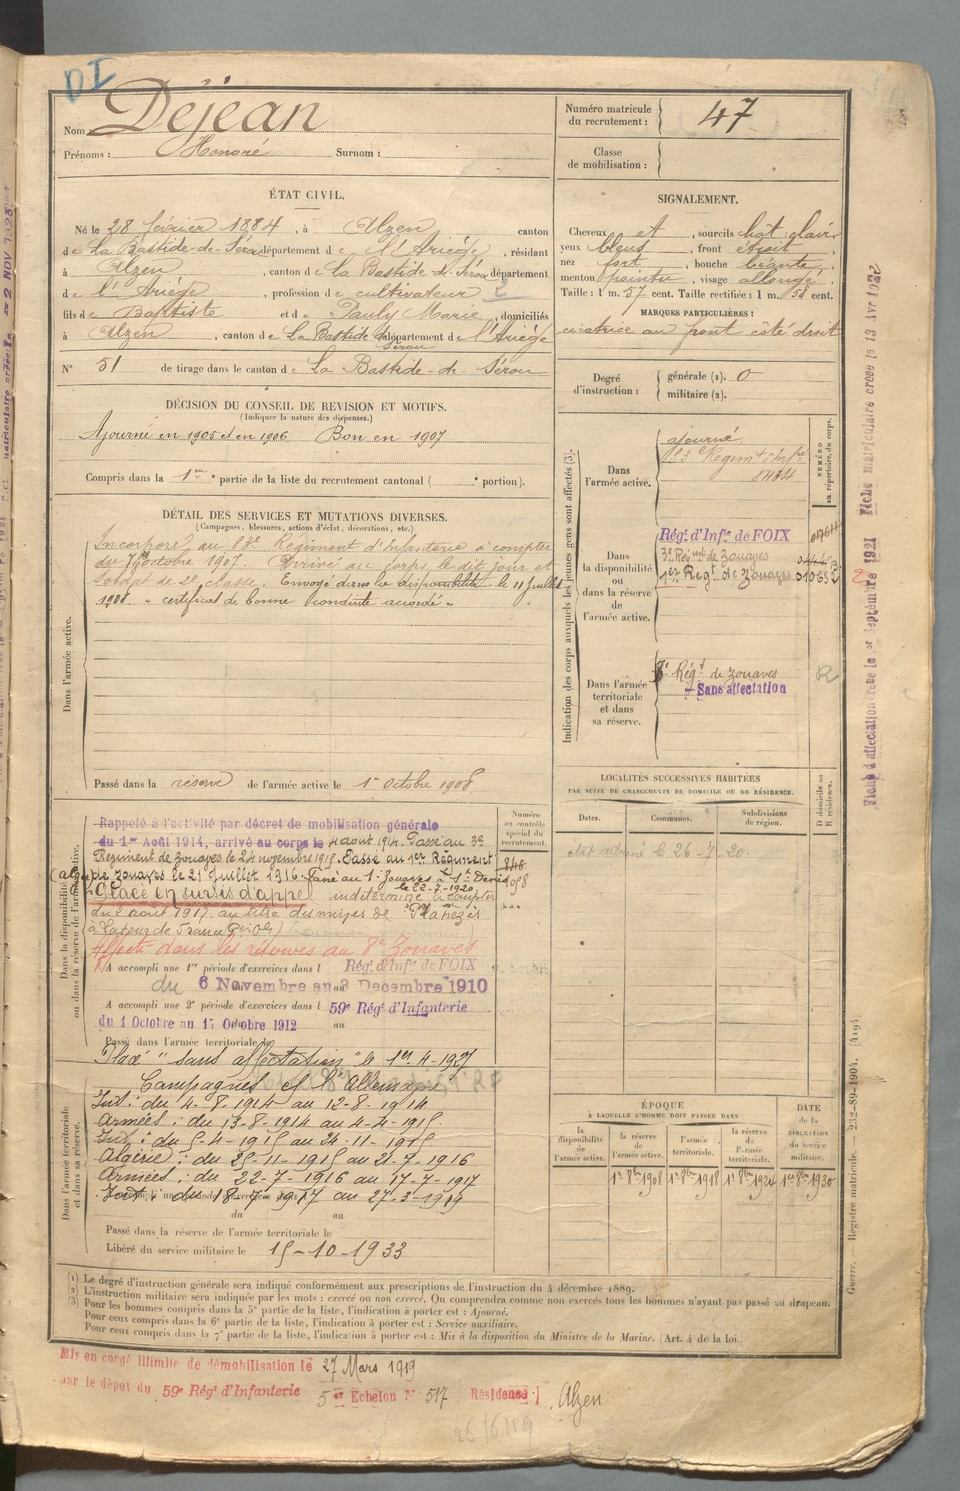 DI
Nom : Déjean
Prénoms : Honoré Surnom :
Numéro matricule du recrutement : 47
Classe de mobilisation :
ÉTAT CIVIL.
Né le 28 février 1884, à Alzen canton
de La Bastide-de-Sérou département de l'Ariège, résidant
à Alzen, canton de La Bastide de Sérou département
de l'Ariège, profession de cultivateur 2
fils de Baptiste et de Pauly Marie, domiciliés
à Alzen, canton de La Bastide de Sérou département de l'Ariège
N° 51 de tirage dans le canton de La Bastide-de Sérou
SIGNALEMENT.
Cheveux et, sourcils chât. clair
yeux bleus, front étroit
nez fort, bouche béante
menton pointu, visage allongé.
Taille : 1 m. 57 cent. Taille rectifiée : 1 m. 58 cent.
MARQUES PARTICULIÈRES :
cicatrice au front côté droit
Degré d'instruction : générale (1). 0
militaire (2).
DÉCISION DU CONSEIL DE REVISION ET MOTIFS.
(Indiquer la nature des dispenses.)
Ajourné en 1905 et en 1906 Bon en 1907
Compris dans la 1re partie de la liste du recrutement cantonal ( e portion).
DÉTAIL DES SERVICES ET MUTATIONS DIVERSES.
(Campagnes, blessures, actions d'éclat, décorations, etc.)
Dans l'armée active.
Incorporé au Régiment d'Infanterie à compter
du octobre 1907. Arrivé au corps le dit jour et
soldat de 2e classe. Envoyé dans la disponibilité le 11 Juillet
1908. " certificat de bonne conduite accordé "
Passé dans la réserve de l'armée active le 1er Octobre 1908
Indication des corps auxquels les jeunes gens sont affectés (3).
NUMÉRO au répertoire du corps.
Dans l'armée active.
ajourné
Régiment d'Infie
Dans la disponibilité ou dans la réserve de l'armée active.
Régt d'Infie de FOIX
3e Régimt de Zouaves
1er Régt de Zouaves
Dans l'armée territoriale et dans sa réserve.
8e Régt de Zouaves
Sans affectation
R
LOCALITÉS SUCCESSIVES HABITÉES
PAR SUITE DE CHANGEMENTS DE DOMICILE OU DE RÉSIDENCE.
D domicile ou R résidence.
Dates. Communes. Subdivisions de région.
le 26-7-20
Dans la disponibilité ou dans la réserve de l'armée active.
Numéro au contrôle spécial du recrutement.
Rappelé à l'activité par décret de mobilisation générale
du 1er Août 1914, arrivé au corps le 4 aout 1914. Passé au 3e
Régiment de Zouaves le 24 novembre 1915. Passé au 1er Régiment
de Zouaves le 21 Juillet 1916. Passé au 1er Zouaves à St Denis
le 22-7-1920
Placé en sursis d'appel indéterminé à compter
du 2 aout 1917 au titre des mines de
à Latour de France
Affecté dans les réserves au 8e Zouaves
A accompli une 1re période d'exercices dans l Régt d'Infie de FOIX
du 6 Novembre au 3 Décembre 1910
A accompli une 2e période d'exercices dans l 59e Régt d'Infanterie
du 1 Octobre au 17 Octobre 1912 au
Passé dans l'armée territoriale le
Placé " sans affectation " le 1er 4-1927
Dans l'armée territoriale et dans sa réserve.
Campagnes c/ l'Allemagne
Int : du 4-8-1914 au 12-8-1914
Armées : du 13-8-1914 au 4-4-1915
Int : du 5-4-1915 au 24-11-1915
Algérie : du 25-11-1915 au 21-7-1916
Armées : du 22-7-1916 au 17-7-1917
Int : du 18-7-1917 au 27-3-1919
du au
Passé dans la réserve de l'armée territoriale le
Libéré du service militaire le 15-10-1933
ÉPOQUE À LAQUELLE L'HOMME DOIT PASSER DANS
DATE de la LIBÉRATION du service militaire.
la disponibilité de l'armée active. la réserve de l'armée active. l'armée territoriale. la réserve de l'armée territoriale.
1er 8bre 1908 1er 8bre 1918 1er 8bre 1924 1er 8bre 1930
(1) Le degré d'instruction générale sera indiqué conformément aux prescriptions de l'instruction du 4 décembre 1889.
(2) L'instruction militaire sera indiquée par les mots : exercé ou non exercé. On comprendra comme non exercés tous les hommes n'ayant pas passé au drapeau.
(3) Pour les hommes compris dans la 5e partie de la liste, l'indication à porter est : Ajourné.
Pour ceux compris dans la 6e partie de la liste, l'indication à porter est : Service auxiliaire.
Pour ceux compris dans la 7e partie de la liste, l'indication à porter est : Mis à la disposition du Ministre de la Marine. (Art. 4 de la loi.)
Mis en congé illimité de démobilisation le 27 Mars 1919
par le dépôt du 59e Régt d'Infanterie 5er Echelon N° 517 Résidence : Alzen
Guerre. — Registre matricule. 232-89-1904. [4194]
Fiche d'affectation créée le 1er Septembre 1921
Fiche matriculaire créée le 13 Avr 1922